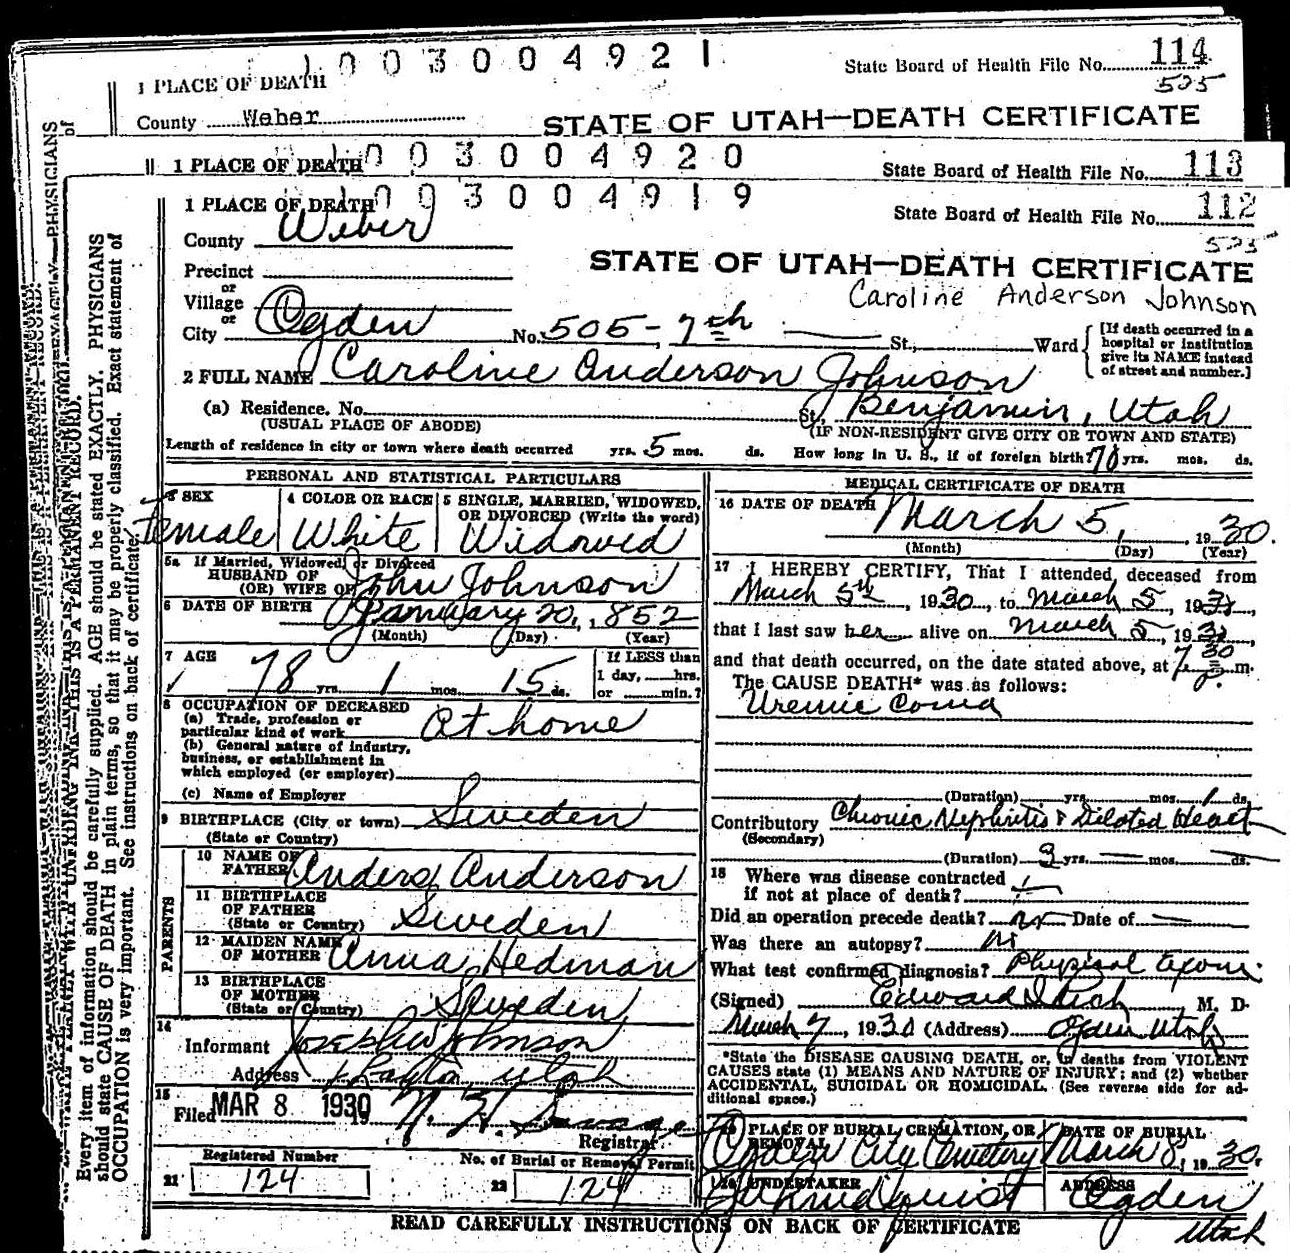 1 0 0 3 0 0 4 9 2 1
State Board of Health File No. 114
525
1 PLACE OF DEATH
County Weber
STATE OF UTAH—DEATH CERTIFICATE
1 0 0 3 0 0 4 9 2 0
1 PLACE OF DEATH
State Board of Health File No. 113
1 0 0 3 0 0 4 9 1 9
1 PLACE OF DEATH
State Board of Health File No. 112
525
County Weber
STATE OF UTAH—DEATH CERTIFICATE
Precinct
or
Caroline Anderson Johnson
Village
or
City Ogden No. 505-7th St., Ward
[If death occurred in a hospital or institution give its NAME instead of street and number.]
2 FULL NAME Caroline Anderson Johnson
(a) Residence. No. St., Benjamin, Utah
(USUAL PLACE OF ABODE) (IF NON-RESIDENT GIVE CITY OR TOWN AND STATE)
Length of residence in city or town where death occurred yrs. 5 mos. ds. How long in U. S., if of foreign birth? 78 yrs. mos. ds.
PERSONAL AND STATISTICAL PARTICULARS
3 SEX
Female
4 COLOR OR RACE
White
5 SINGLE, MARRIED, WIDOWED, OR DIVORCED (Write the word)
Widowed
5a If Married, Widowed, or Divorced
HUSBAND OF
(OR) WIFE OF John Johnson
6 DATE OF BIRTH January 20, 1852
(Month) (Day) (Year)
7 AGE
78 yrs. 1 mos. 15 ds.
If LESS than
1 day, hrs.
or min.?
8 OCCUPATION OF DECEASED
(a) Trade, profession or
particular kind of work At home
(b) General nature of industry,
business, or establishment in
which employed (or employer)
(c) Name of Employer
9 BIRTHPLACE (City or town) Sweden
(State or Country)
PARENTS
10 NAME OF
FATHER Anders Anderson
11 BIRTHPLACE
OF FATHER
(State or Country) Sweden
12 MAIDEN NAME
OF MOTHER Anna Hedman
13 BIRTHPLACE
OF MOTHER
(State or Country) Sweden
14
Informant Joseph Johnson
Address Utah
15
Filed MAR 8 1930
Registrar.
Registered Number
21 124
No. of Burial or Removal Permit
22 124
MEDICAL CERTIFICATE OF DEATH
16 DATE OF DEATH March 5, 1930.
(Month) (Day) (Year)
17 I HEREBY CERTIFY, That I attended deceased from
March 5th, 1930, to March 5, 1930,
that I last saw her alive on March 5, 1930,
and that death occurred, on the date stated above, at 7:30 p. m.
The CAUSE DEATH* was as follows:
Uremic Coma
(Duration) yrs. mos. 1 ds.
Contributory Chronic Nephritis & Dilated Heart
(Secondary)
(Duration) 3 yrs. — mos. — ds.
18 Where was disease contracted
if not at place of death?
Did an operation precede death? no Date of —
Was there an autopsy? no
What test confirmed diagnosis? Physical Exam.
(Signed) Edward I Rich M. D.
March 7, 1930 (Address) Ogden Utah
*State the DISEASE CAUSING DEATH, or, in deaths from VIOLENT
CAUSES state (1) MEANS AND NATURE OF INJURY; and (2) whether
ACCIDENTAL, SUICIDAL OR HOMICIDAL. (See reverse side for ad-
ditional space.)
19 PLACE OF BURIAL, CREMATION, OR REMOVAL
Ogden City Cemetery
DATE OF BURIAL
March 8, 1930.
20 UNDERTAKER
ADDRESS
Ogden
Utah
READ CAREFULLY INSTRUCTIONS ON BACK OF CERTIFICATE
Every item of information should be carefully supplied. AGE should be stated EXACTLY. PHYSICIANS
should state CAUSE OF DEATH in plain terms, so that it may be properly classified. Exact statement of
OCCUPATION is very important. See instructions on back of certificate.